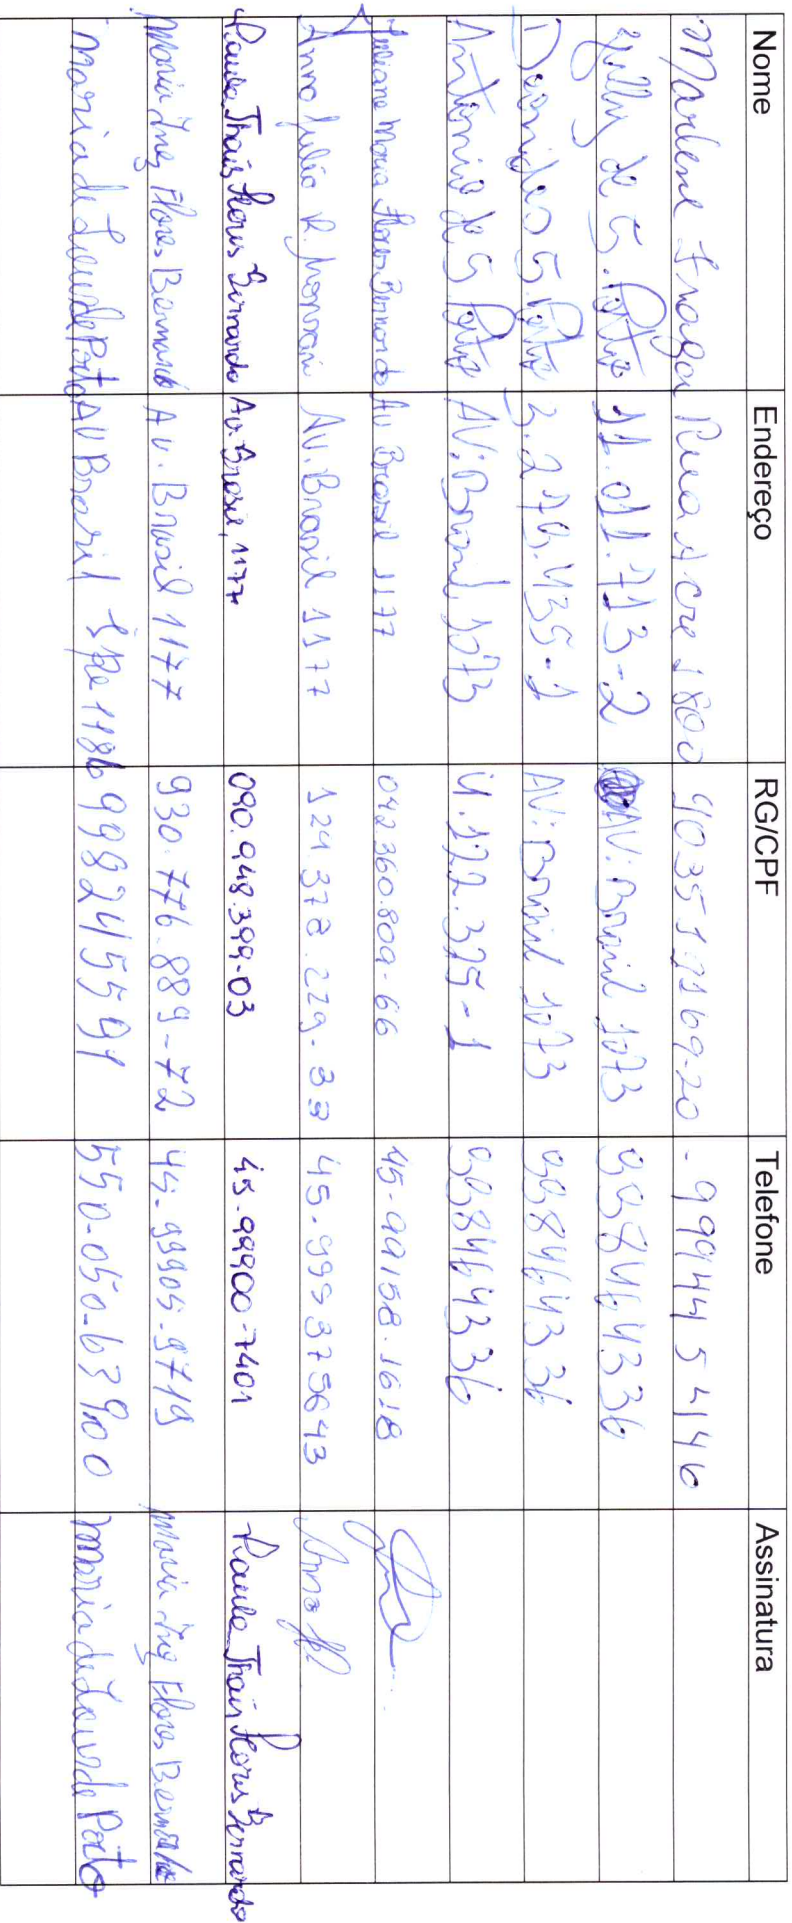 Nome Endereço RG/CPF Telefone Assinatura
Marlene Fraga Rua Acre 1800 - 999445 4146
de S. Porto 11.011.713-2 AV: Brasil 1073 998464336
S. Porto AV: Brasil 1073 998464336
Antonio de S Porto AV: Brasil 1073 4.122.325-1 998464336
Juliane Maria Flores Bernardo Av Brasil 1177 042360.809-66 45-99158.1618
Anna Julia R. Av. Brasil 1177 124.378.229-39 45.999375643 Anna
Paula Thais Flores Bernardo Av. Brasil, 1177 090.948.399-03 45.99900-7401 Paula Thais Flores Bernardo
Maria Inez Flores Bernardo Av. Brasil 1177 930.776.889-72 45.99905-9719 Maria Inez Flores Bernardo
Maria de Lourde Porto AV Brasil 1186 998245591 550-050-63900 Maria de Lourde Porto